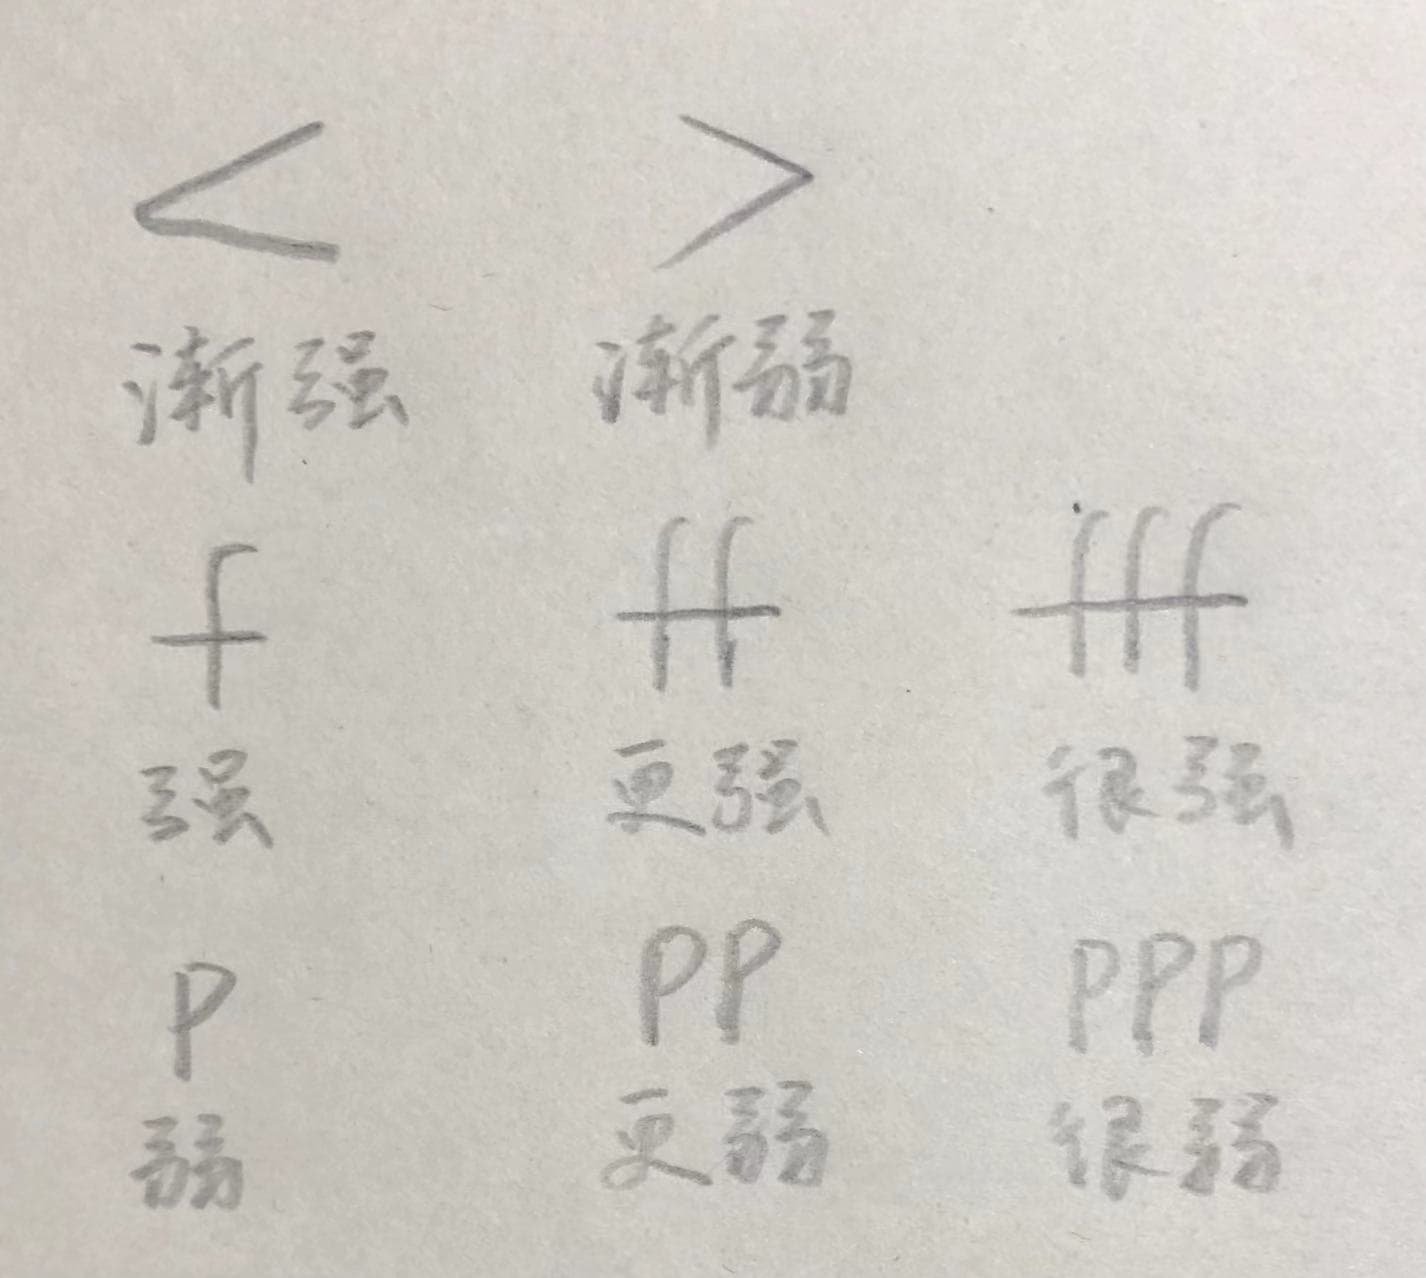 < >
渐强 渐弱
f ff fff
强 更强 很强
P PP PPP
弱 更弱 很弱